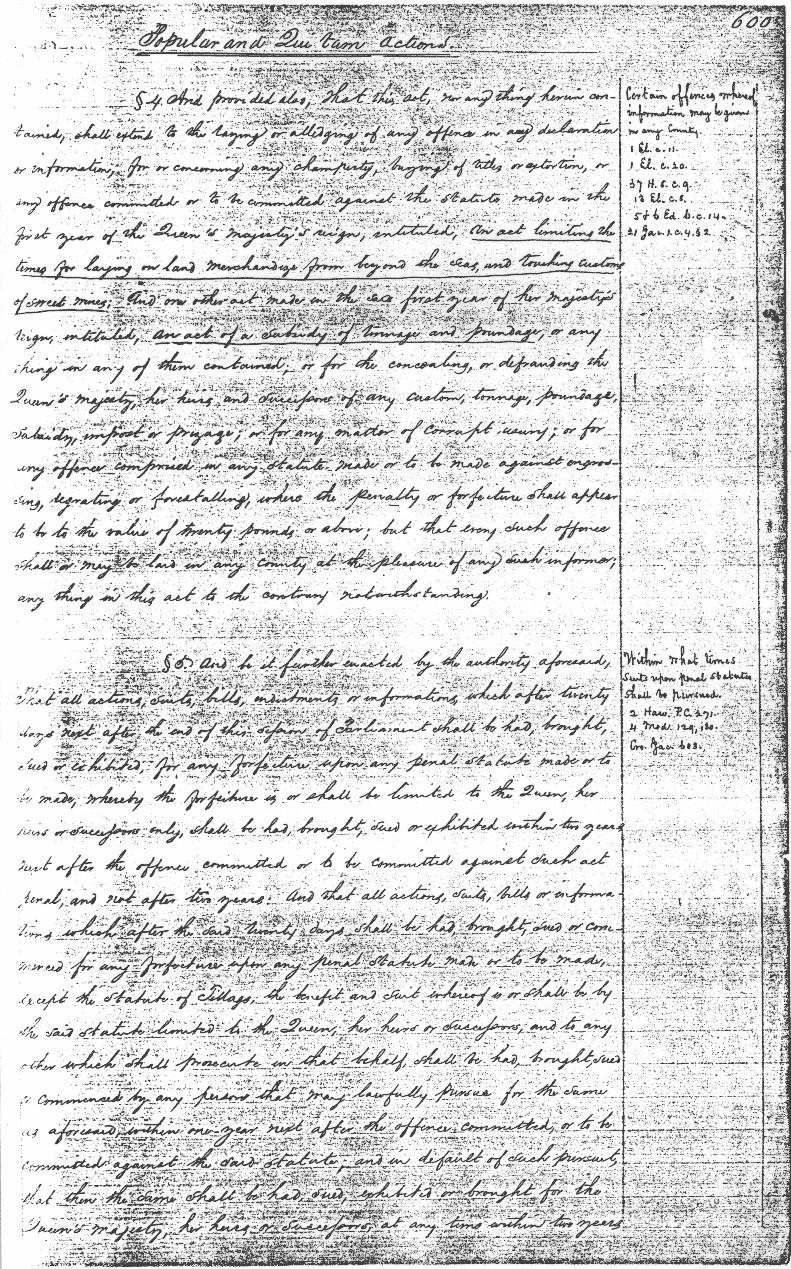 600
Popular and Qui tam actions.
§ 4. And provided also, that this act, nor any thing herein con-
tained, shall extend to the laying or alledging of any offence in any declaration
or information, for or concerning any champerty, buying of titles or extortion, or
any offence committed or to be committed against the statute made in the
first year of the Queen's majesty's reign, intituled, An act limiting the
times for laying on land merchandize from beyond the seas, and touching customs
of sweet wines; And one other act made in the first year of her majesty's
reign, intituled, an act of a subsidy of tonnage and poundage, or any
thing in any of them contained, or for the concealing, or defrauding the
Queen's majesty, her heirs and successors of any custom, tonnage, poundage,
subsidy, impost or prizage; or for any matter of corrupt usury; or for
any offence comprised in any statute made or to be made against engros-
sing, regrating or forestalling, where the penalty or forfeiture shall appear
to be to the value of twenty pounds or above; but that every such offence
shall or may be laid in any county at the pleasure of any such informer;
any thing in this act to the contrary notwithstanding.
Certain offences whereof
information may be given
in any County.
1 El. c. 11.
1 El. c. 20.
37 H. 8. c. 9.
13 El. c. 8.
5 & 6 Ed. 6. c. 14.
21 Jac. 1. c. 4. § 2.
§ 5. And be it further enacted by the authority aforesaid,
That all actions, suits, bills, indictments or informations, which after twenty
days next after the end of this session of Parliament shall be had, brought,
sued or exhibited, for any forfeiture upon any penal statute made or to
be made, whereby the forfeiture is or shall be limited to the Queen, her
heirs or successors only, shall be had, brought, sued or exhibited within two years
next after the offence committed or to be committed against such act
penal, and not after two years: And that all actions, suits, bills or informa-
tions which after the said twenty days shall be had, brought, sued or com-
menced for any forfeiture upon any penal statute made or to be made,
except the statute of Tillage, the benefit and suit whereof is or shall be by
the said statute limited to the Queen, her heirs or successors, and to any
other which shall prosecute in that behalf, shall be had, brought sued
or commenced by any person that may lawfully pursue for the same
as aforesaid, within one year next after the offence committed, or to be
committed against the said statute; and in default of such pursuit,
that then the same shall be had, sued, exhibited or brought for the
Queen's majesty, her heirs or successors, at any time within two years
Within what times
suits upon penal statutes
shall be pursued.
2 Haw. P.C. 271.
4 Mod. 129, 130.
Cro. Jac. 603.